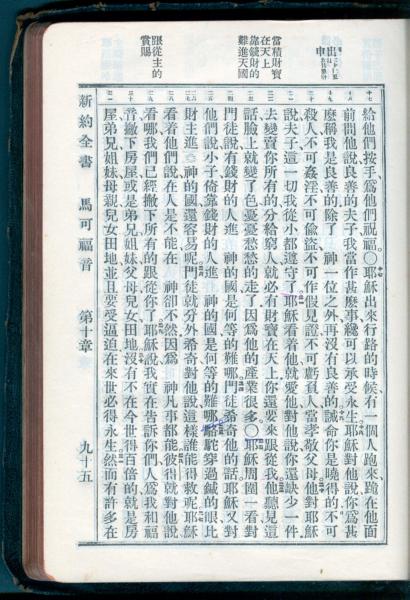 當積財寶
在天上
靠錢財的
難進天國
跟從主的
賞賜
給他們按手爲他們祝福〇耶穌出來行路的時候有一個人跑來跪在他面
前問他說良善的夫子我當作甚麼事纔可以承受永生耶穌對他說你爲甚
麼稱我是良善的除了 神一位之外再沒有良善的誡命你是曉得的不可
殺人不可姦淫不可偷盜不可作假見證不可虧負人當孝敬父母他對耶穌
說夫子這一切我從小都遵守了耶穌看着他就愛他對他說你還缺少一件
去變賣你所有的分給窮人就必有財寶在天上你還要來跟從我他聽見這
話臉上就變了色憂憂愁愁的走了因爲他的產業很多〇耶穌周圍一看對
門徒說有錢財的人進 神的國是何等的難哪門徒希奇他的話耶穌又對
他們說小子倚靠錢財的人進 神的國是何等的難哪駱駝穿過鍼的眼比
財主進 神的國還容易呢門徒就分外希奇對他說這樣誰能得救呢耶穌
看着他們說在人是不能在 神卻不然因爲 神凡事都能彼得就對他說
看哪我們已經撇下所有的跟從你了耶穌說我實在告訴你們人爲我和福
音撇下房屋或是弟兄姐妹父母兒女田地沒有不在今世得百倍的就是房
屋弟兄姐妹母親兒女田地並且要受逼迫在來世必得永生然而有許多在
新約全書 馬可福音 第十章 九十五